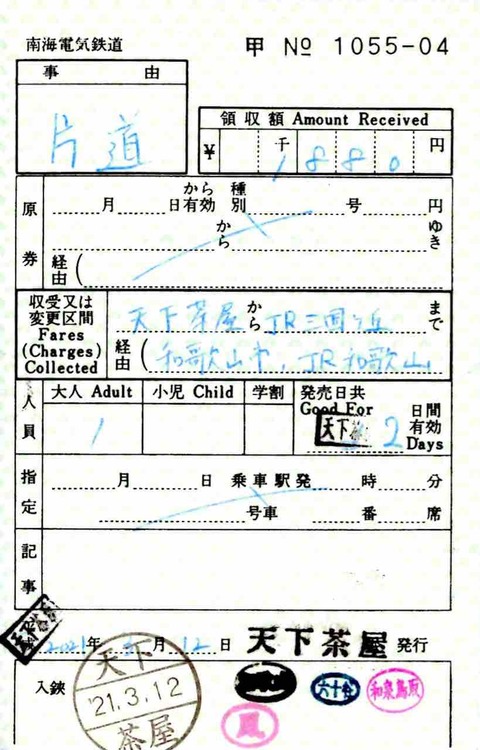 南海電気鉄道
甲 № 1055-04
事 由
片道
領収額 Amount Received
¥ 千 1 8 8 0 円
原券
から 種
月 日有効 別 号 円
か ゆ
ら き
経由(
収受又は
変更区間
Fares
(Charges)
Collected
天下茶屋 から JR三国ヶ丘 まで
経由(和歌山市, JR和歌山
人員
大人 Adult 小児 Child 学割
1
発売日共
Good For
2
日間
有効
Days
指定
月 日 乗車駅発 時 分
号車 番 席
記事
2021年 3月 12日 天下茶屋 発行
入鋏
天下
'21.3.12
茶屋
和泉鳥取
鳳